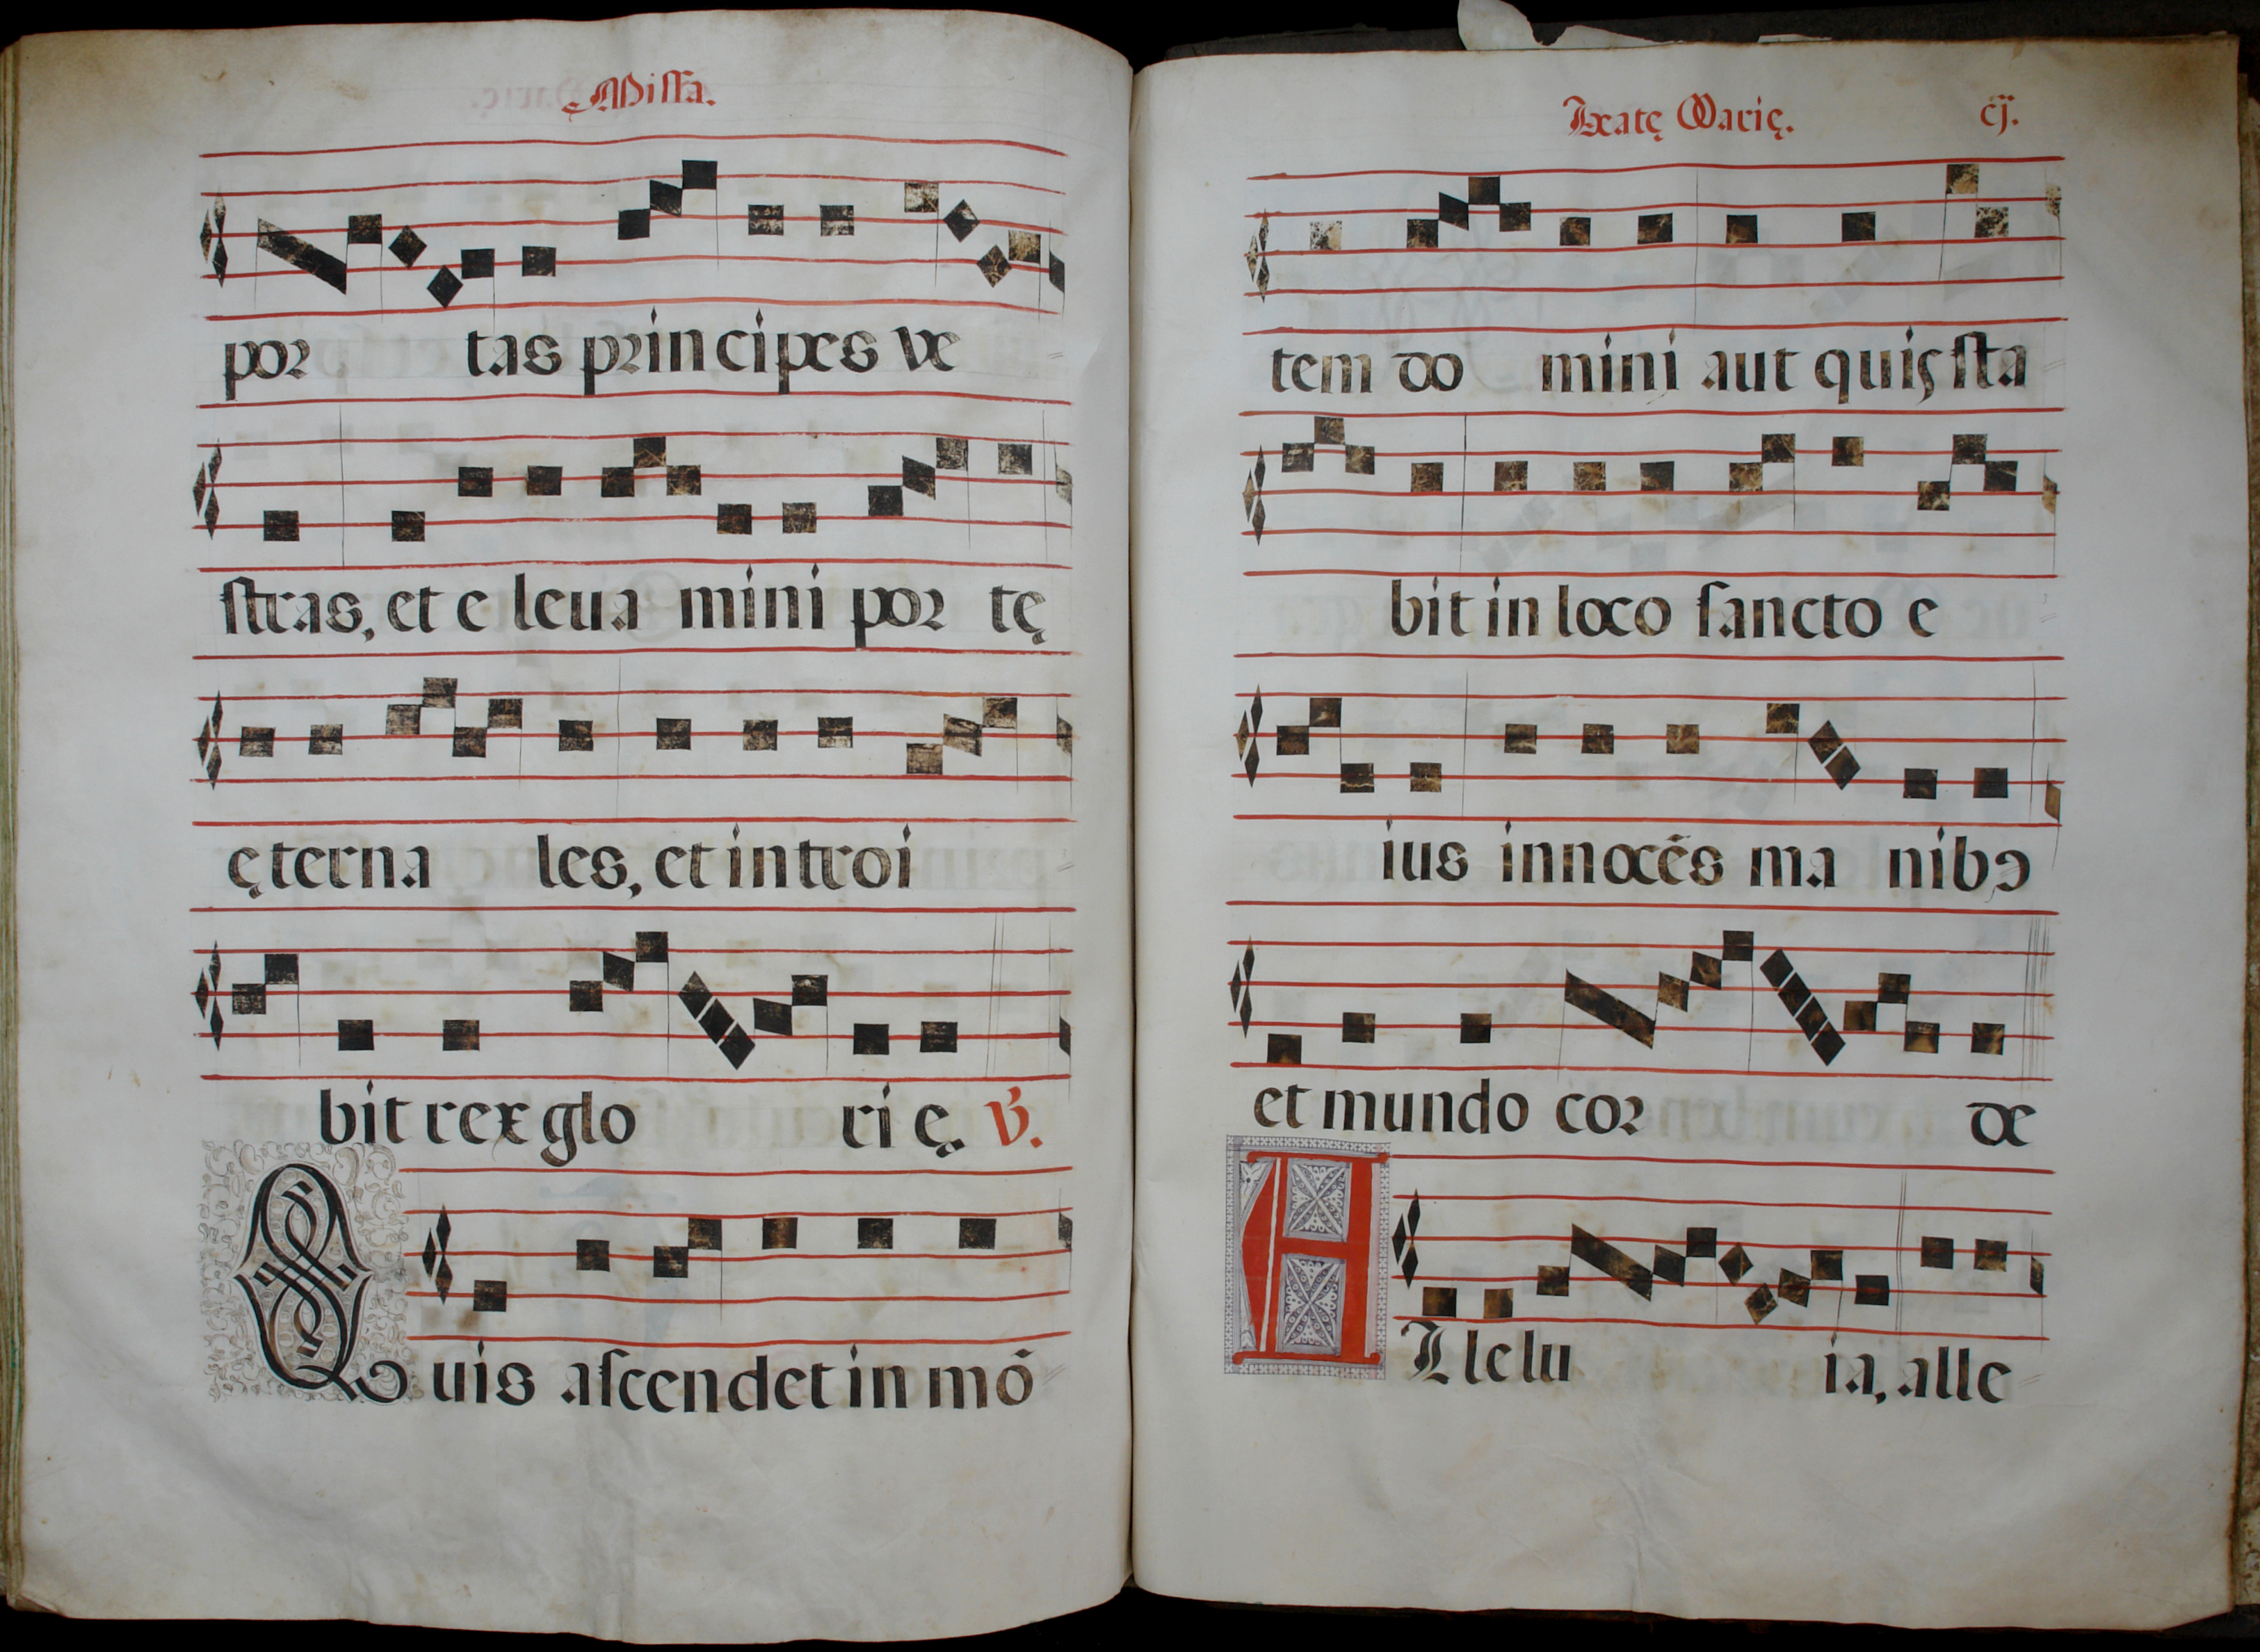 Missa.
por tas principes ve
stras, et e leua mini por tę
ęterna les, et introi
bit rex glo ri ę. ℣.
Quis ascendet in mõ
Beatę Marię. cij.
tem do mini aut quis sta
bit in loco sancto e
ius innocẽs ma nibꝯ
et mundo cor de
Allelu ia, alle